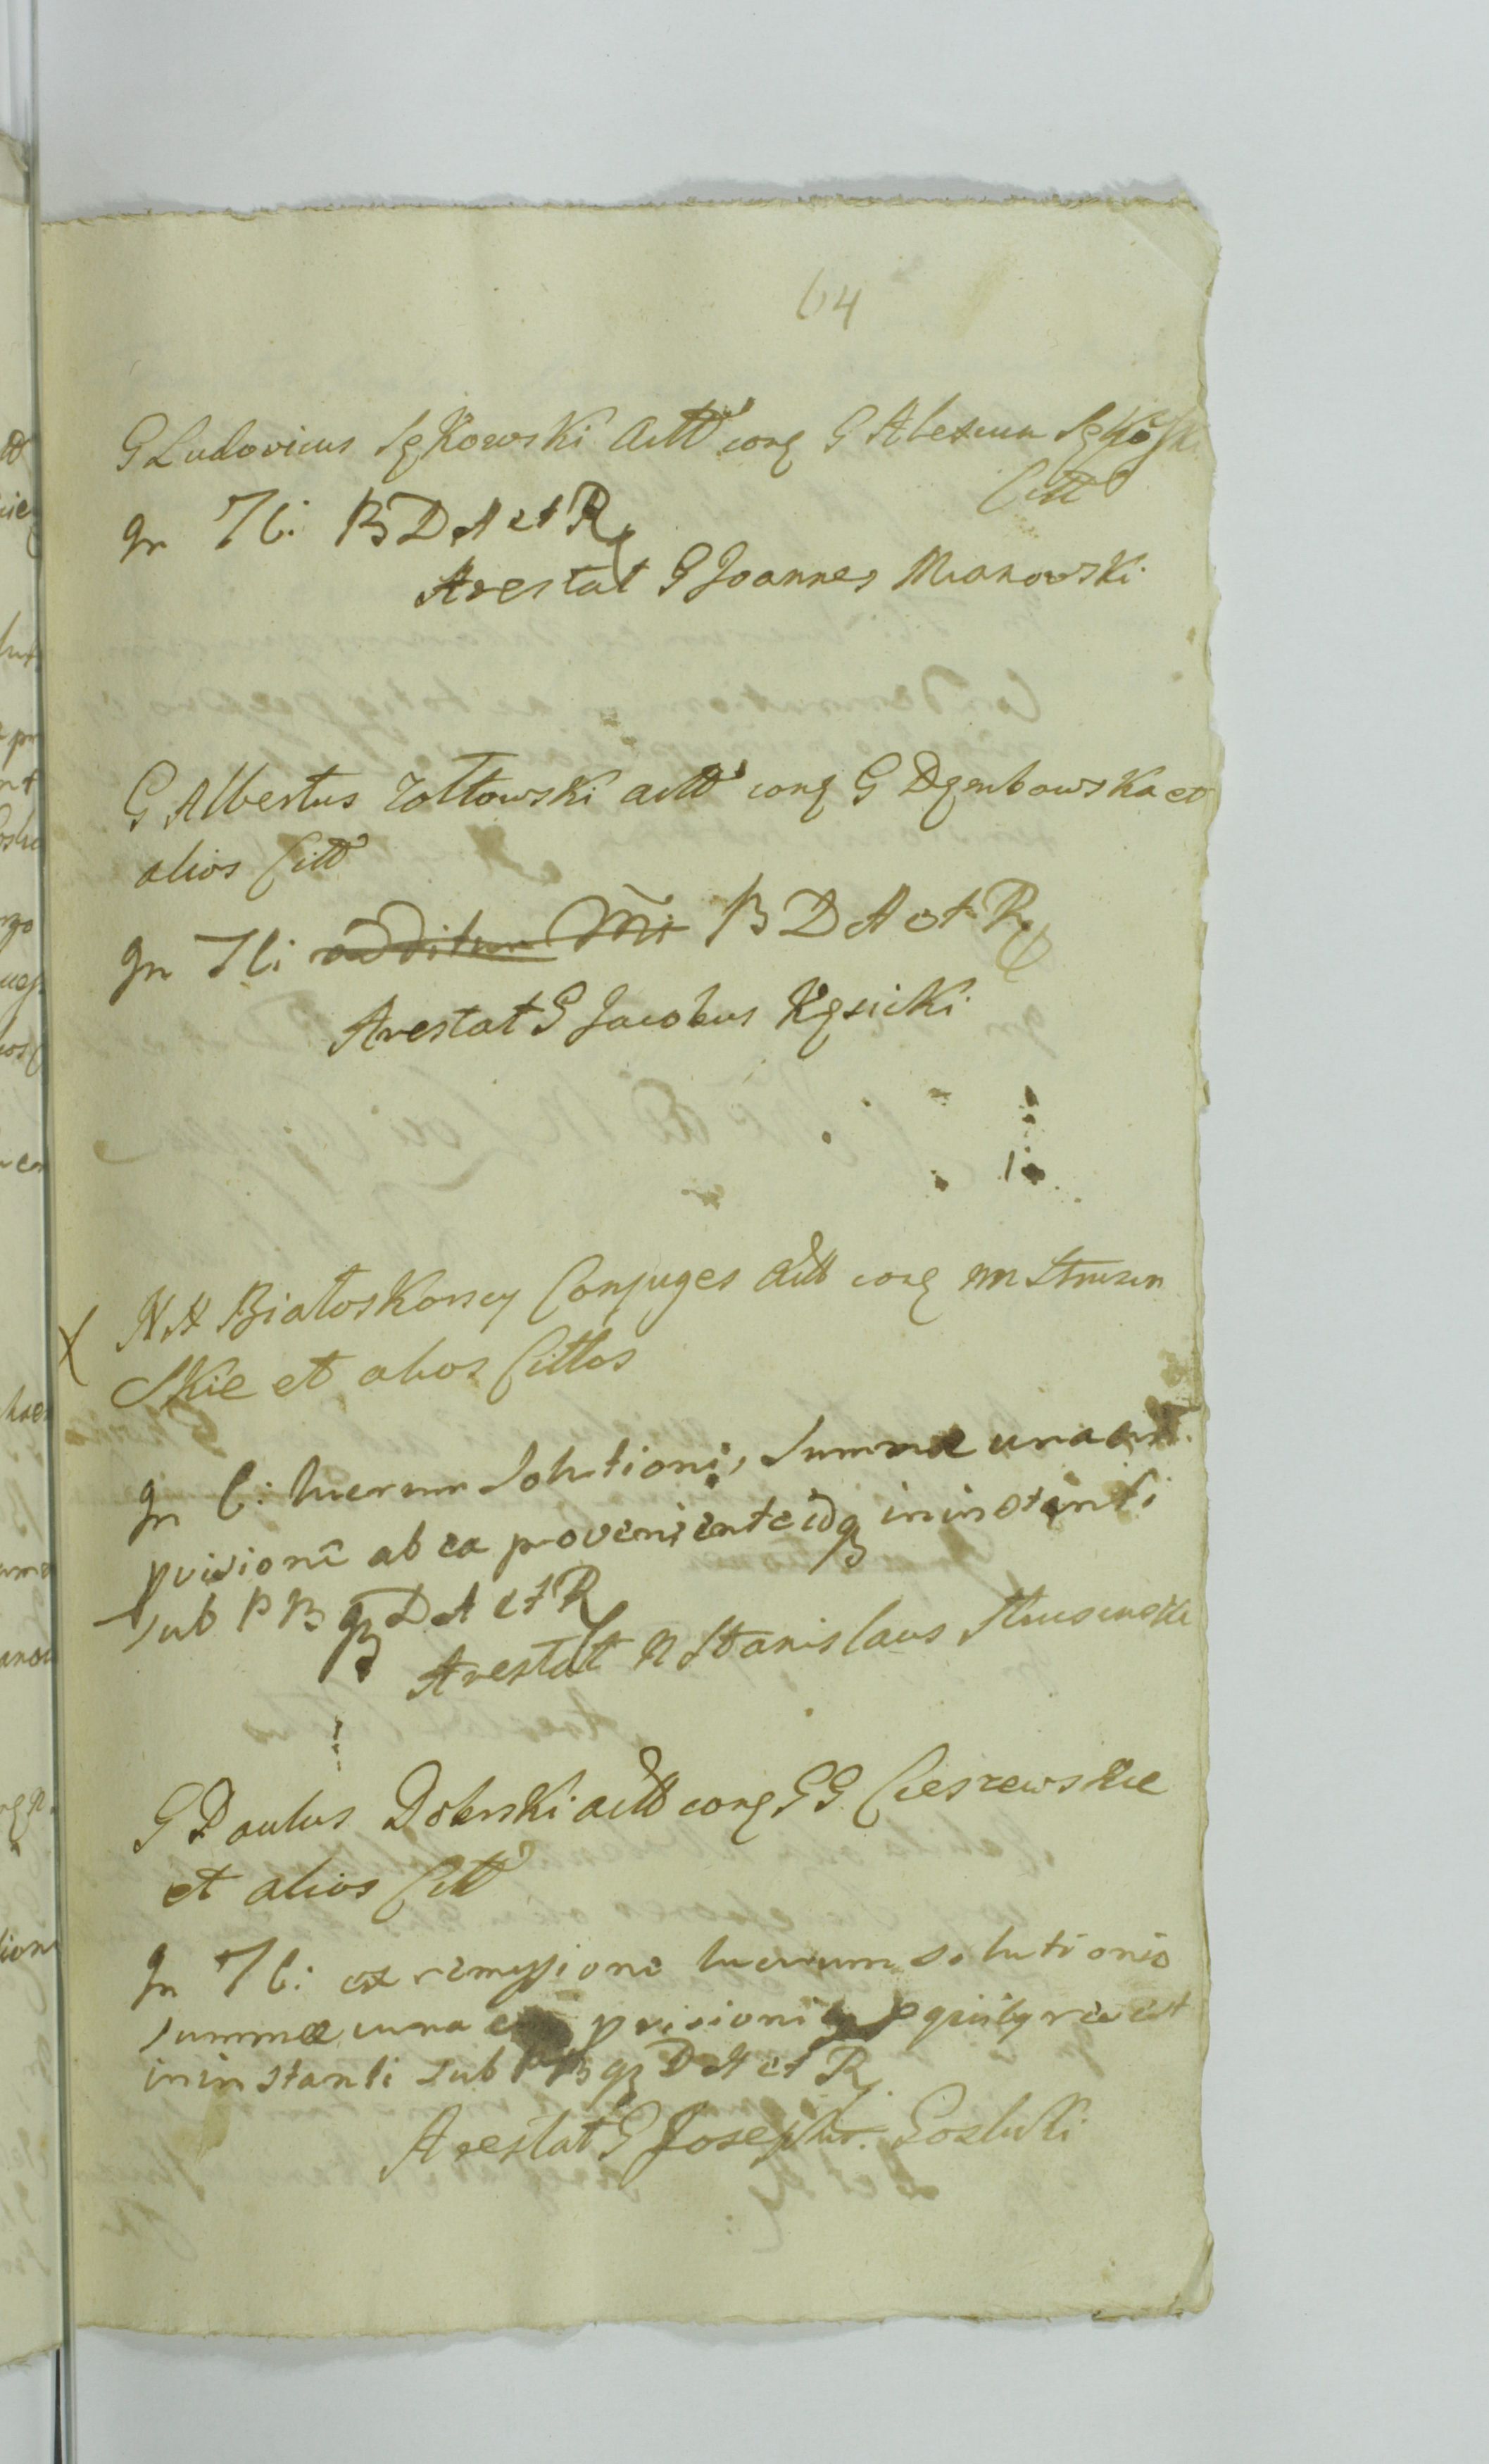 64
G Ludovicus Sękowski Actt conq G Alexum Sękosk
Citt
In Tli: B D A et R
Arestat G Joannes Mianowski
G Albertus Zołtowski actt conq G Dęmbowska et
alios Citt
In Tli additum Mi B D A et R
Arestat G Jacobus Kęsicki
X NN Białoskorscy Conjuges Actt conq NN Strusin
skie et alios Cittos
In C: lucrum Solutionis Summæ una cum
pvisione ab ea proveniente idq in instanti
sub P B q D A et R
Arestat N Stanislaus
G Paulus Dobrski actt conq GG Cieszewskie
et alios Citt
In Tli: ex remissione lucrum solutionis
summæ una pvisionibq
in instanti sub P B q D A et R
Arestat G Josephus Gozlicki